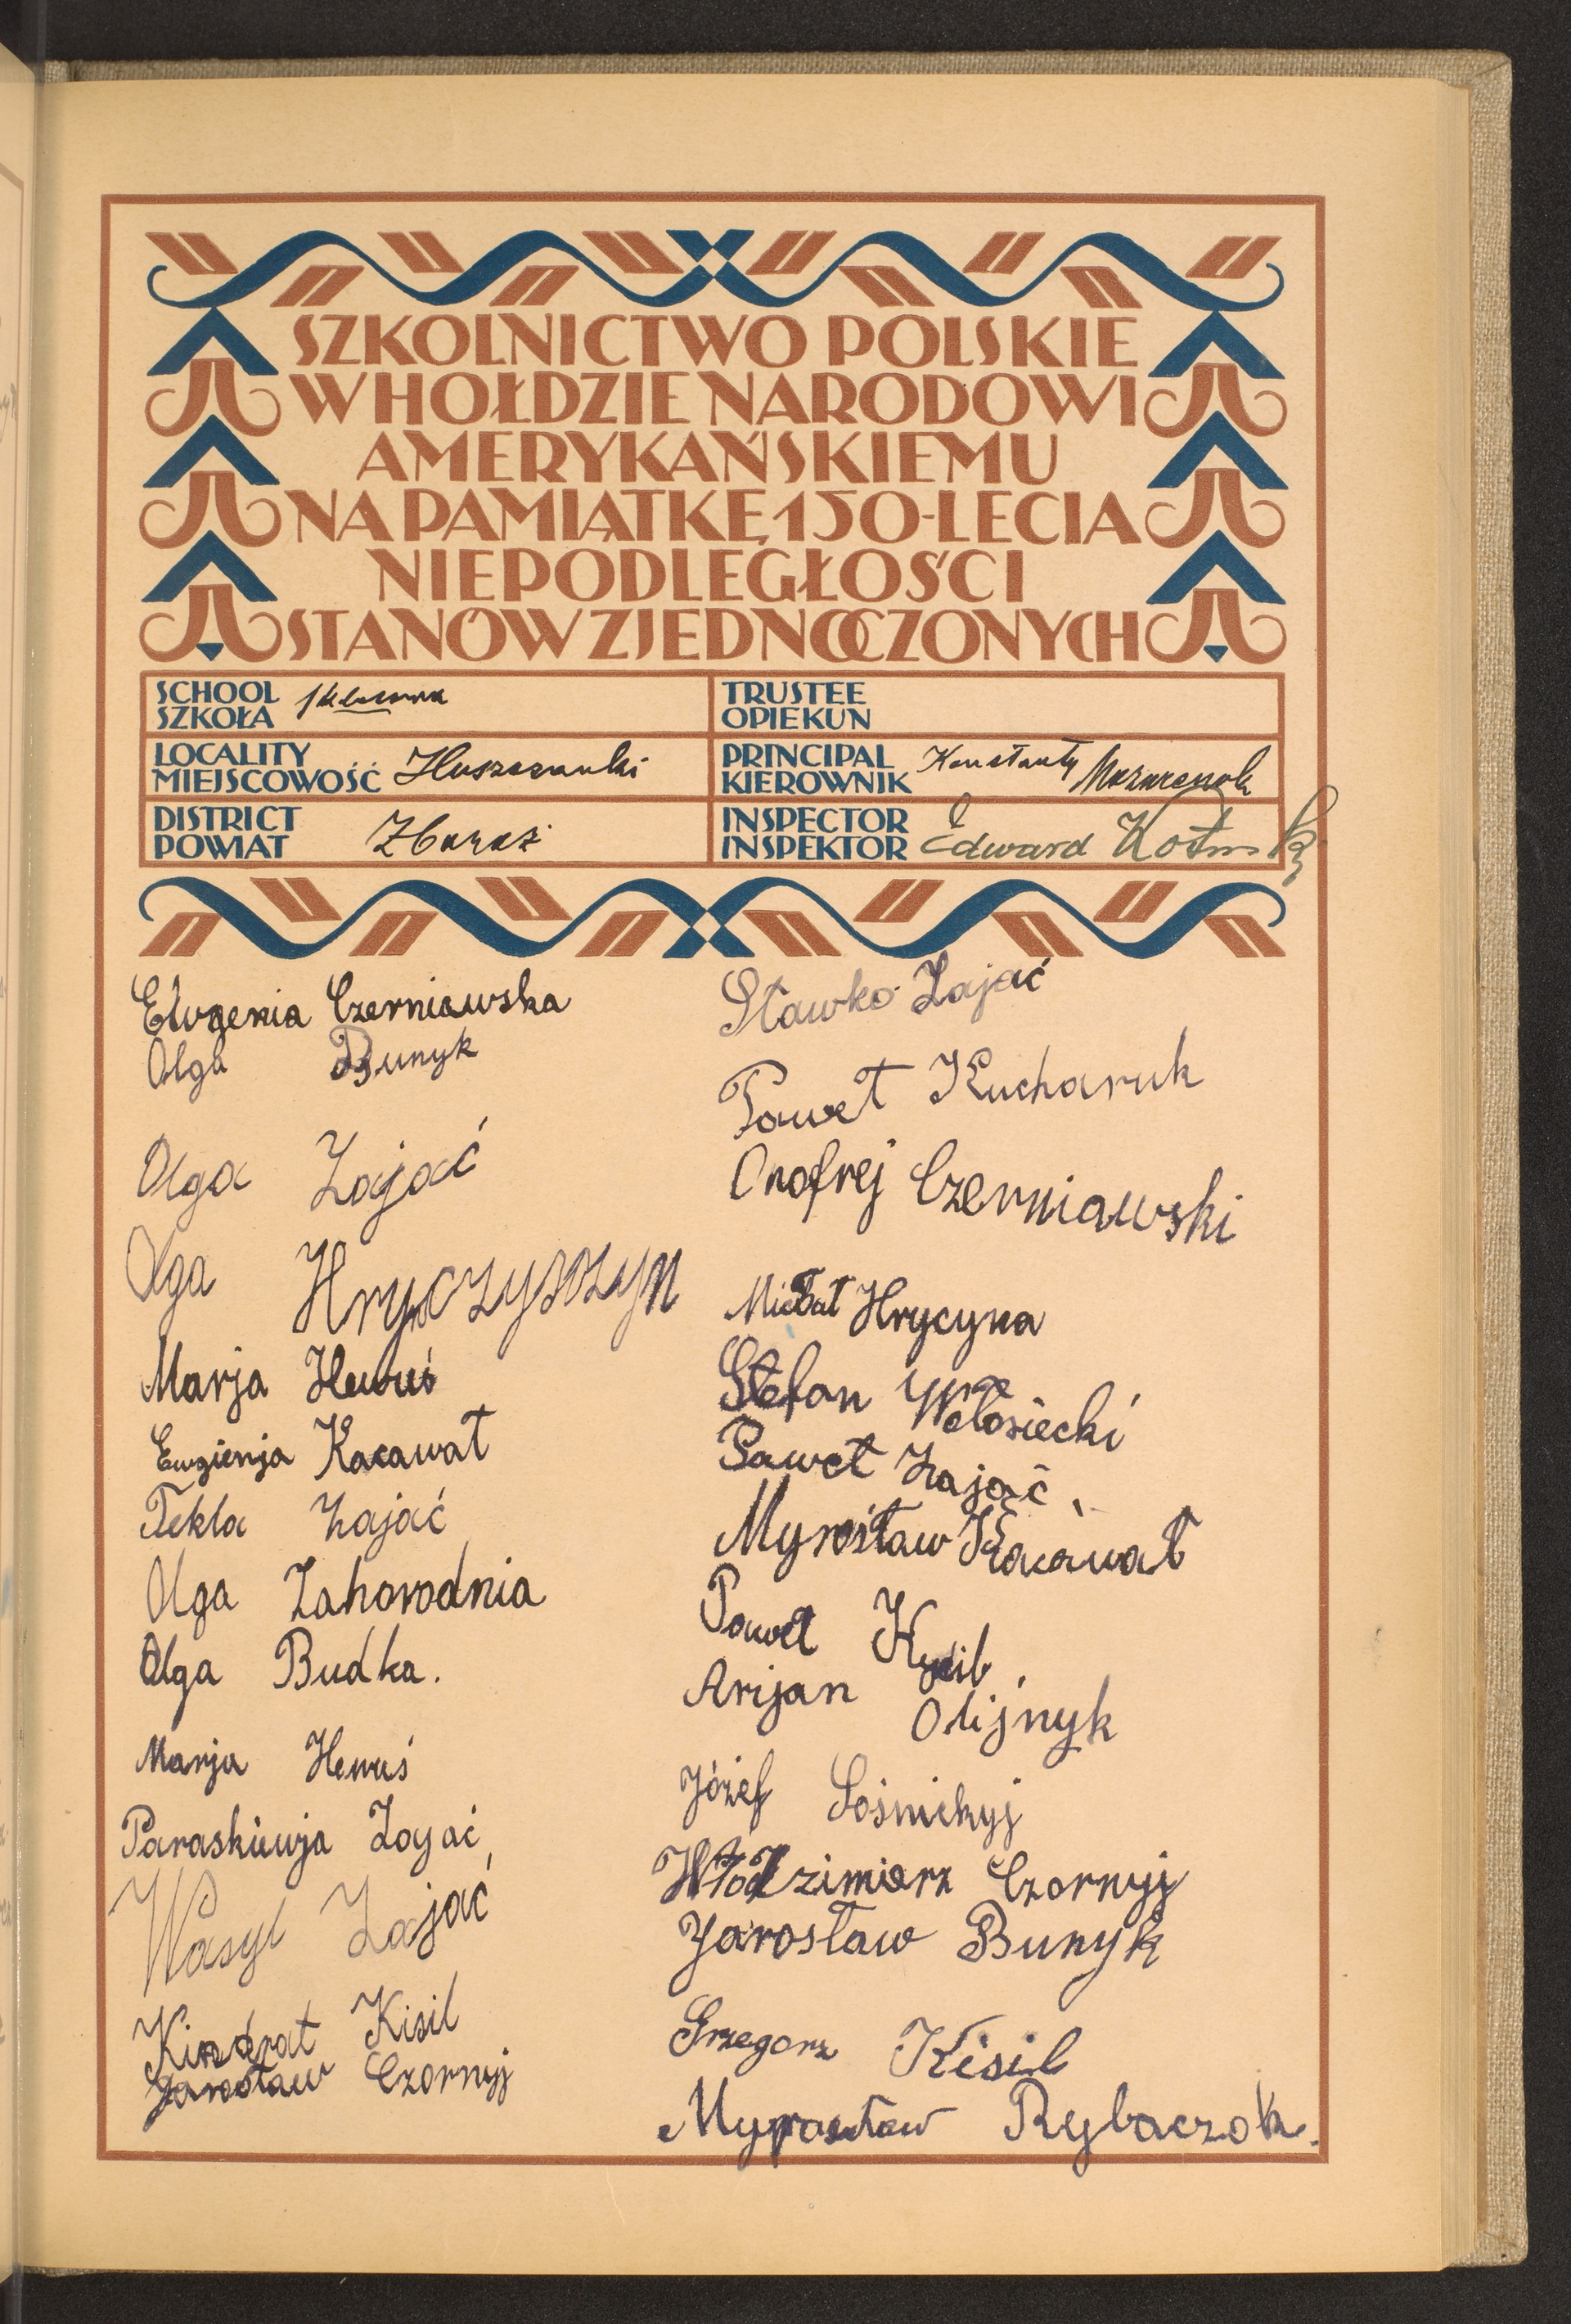 SZKOLNICTWO POLSKIE
W HOŁDZIE NARODOWI
AMERYKAŃSKIEMU
NA PAMIĄTKĘ 150-LECIA
NIEPODLEGŁOŚCI
STANÓW ZJEDNOCZONYCH
SCHOOL
SZKOŁA
LOCALITY
MIEJSCOWOŚĆ Hluszczanki
DISTRICT
POWIAT Zbaraż
TRUSTEE
OPIEKUN
PRINCIPAL
KIEROWNIK Konstanty
INSPECTOR
INSPEKTOR Edward
Ewgenia Czerniawska
Olga Bunyk
Olga Zajać
Olga Hryczyszyn
Marja Hewuś
Ewgienja Kacawał
Tekla Zajać
Olga Zahorodnia
Olga Budka.
Marja Hewuś
Paraskiewja Zajać
Wasyl Zajać
Kindrat Kisil
Jarosław Czornyj
Sławko Zajać
Paweł Kucharuk
Onofrej Czerniawski
Michał Hrycyna
Stefan Wołosiecki
Paweł Zajać
Myrosław Kacawał
Paweł Kysil
Arijan Olijnyk
Józef Sośnickyj
Włodzimierz Czornyj
Jarosław Bunyk
Grzegorz Kisil
Myrosław Rybaczok.